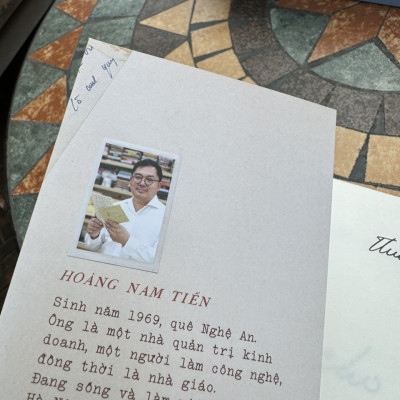 HOÀNG NAM TIẾN
Sinh năm 1969, quê Nghệ An.
Ông là một nhà quản trị kinh
doanh, một người làm công nghệ,
đồng thời là nhà giáo.
Đang sống và làm